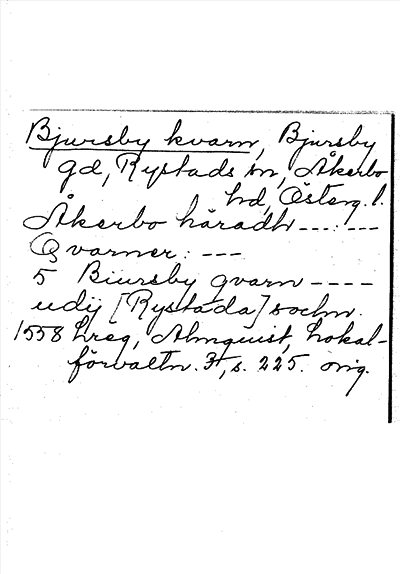 Bjursby kvarn, Bjursby
gd, Rystads sn, Åkerbo
hd, Österg. l.
Åkerbo häradh ---:---
Qvarner: ---
5 Biursby qvarn ----
udij [Rystada] sochn.
1558 hreg, Almquist, Lokal-
förvaltn. 3, s. 225. orig.